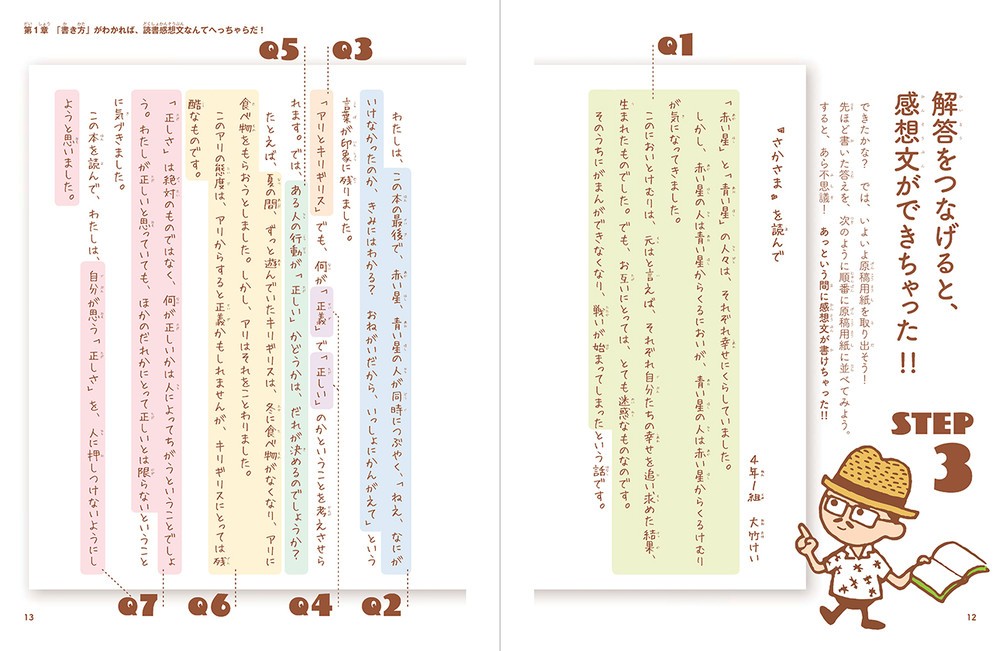 STEP
3
解答をつなげると、
感想文ができちゃった!!
できたかな? では、いよいよ原稿用紙を取り出そう!
先ほど書いた答えを、次のように順番に原稿用紙に並べてみよう。
すると、あら不思議! あっという間に感想文が書けちゃった!!
『さかさま』を読んで
4年1組 大竹けい
Q1
「赤い星」と「青い星」の人々は、それぞれ幸せにくらしていました。
しかし、赤い星の人は青い星からくるにおいが、青い星の人は赤い星からくるけむり
が気になってきました。
このにおいとけむりは、元はと言えば、それぞれ自分たちの幸せを追い求めた結果、
生まれたものでした。でも、お互いにとっては、とても迷惑なものなのです。
そのうちにがまんができなくなり、戦いが始まってしまったという話です。
12
第1章 「書き方」がわかれば、読書感想文なんてへっちゃらだ!
Q3
Q5
わたしは、この本の最後で、赤い星、青い星の人が同時につぶやく、「ねえ、なにが
いけなかったのか、きみにはわかる? おねがいだから、いっしょにかんがえて」という
言葉が印象に残りました。
「アリとキリギリス」でも、何が「正義」で「正しい」のかということを考えさせら
れます。では、ある人の行動が「正しい」かどうかは、だれが決めるのでしょうか?
たとえば、夏の間、ずっと遊んでいたキリギリスは、冬に食べ物がなくなり、アリに
食べ物をもらおうとしました。しかし、アリはそれをことわりました。
このアリの態度は、アリからすると正義かもしれませんが、キリギリスにとっては残
酷なものです。
「正しさ」は絶対のものではなく、何が正しいかは人によってちがうということでしょ
う。わたしが正しいと思っていても、ほかのだれかにとって正しいとは限らないということ
に気づきました。
この本を読んで、わたしは、自分が思う「正しさ」を、人に押しつけないようにし
ようと思いました。
Q2
Q4
Q6
Q7
13